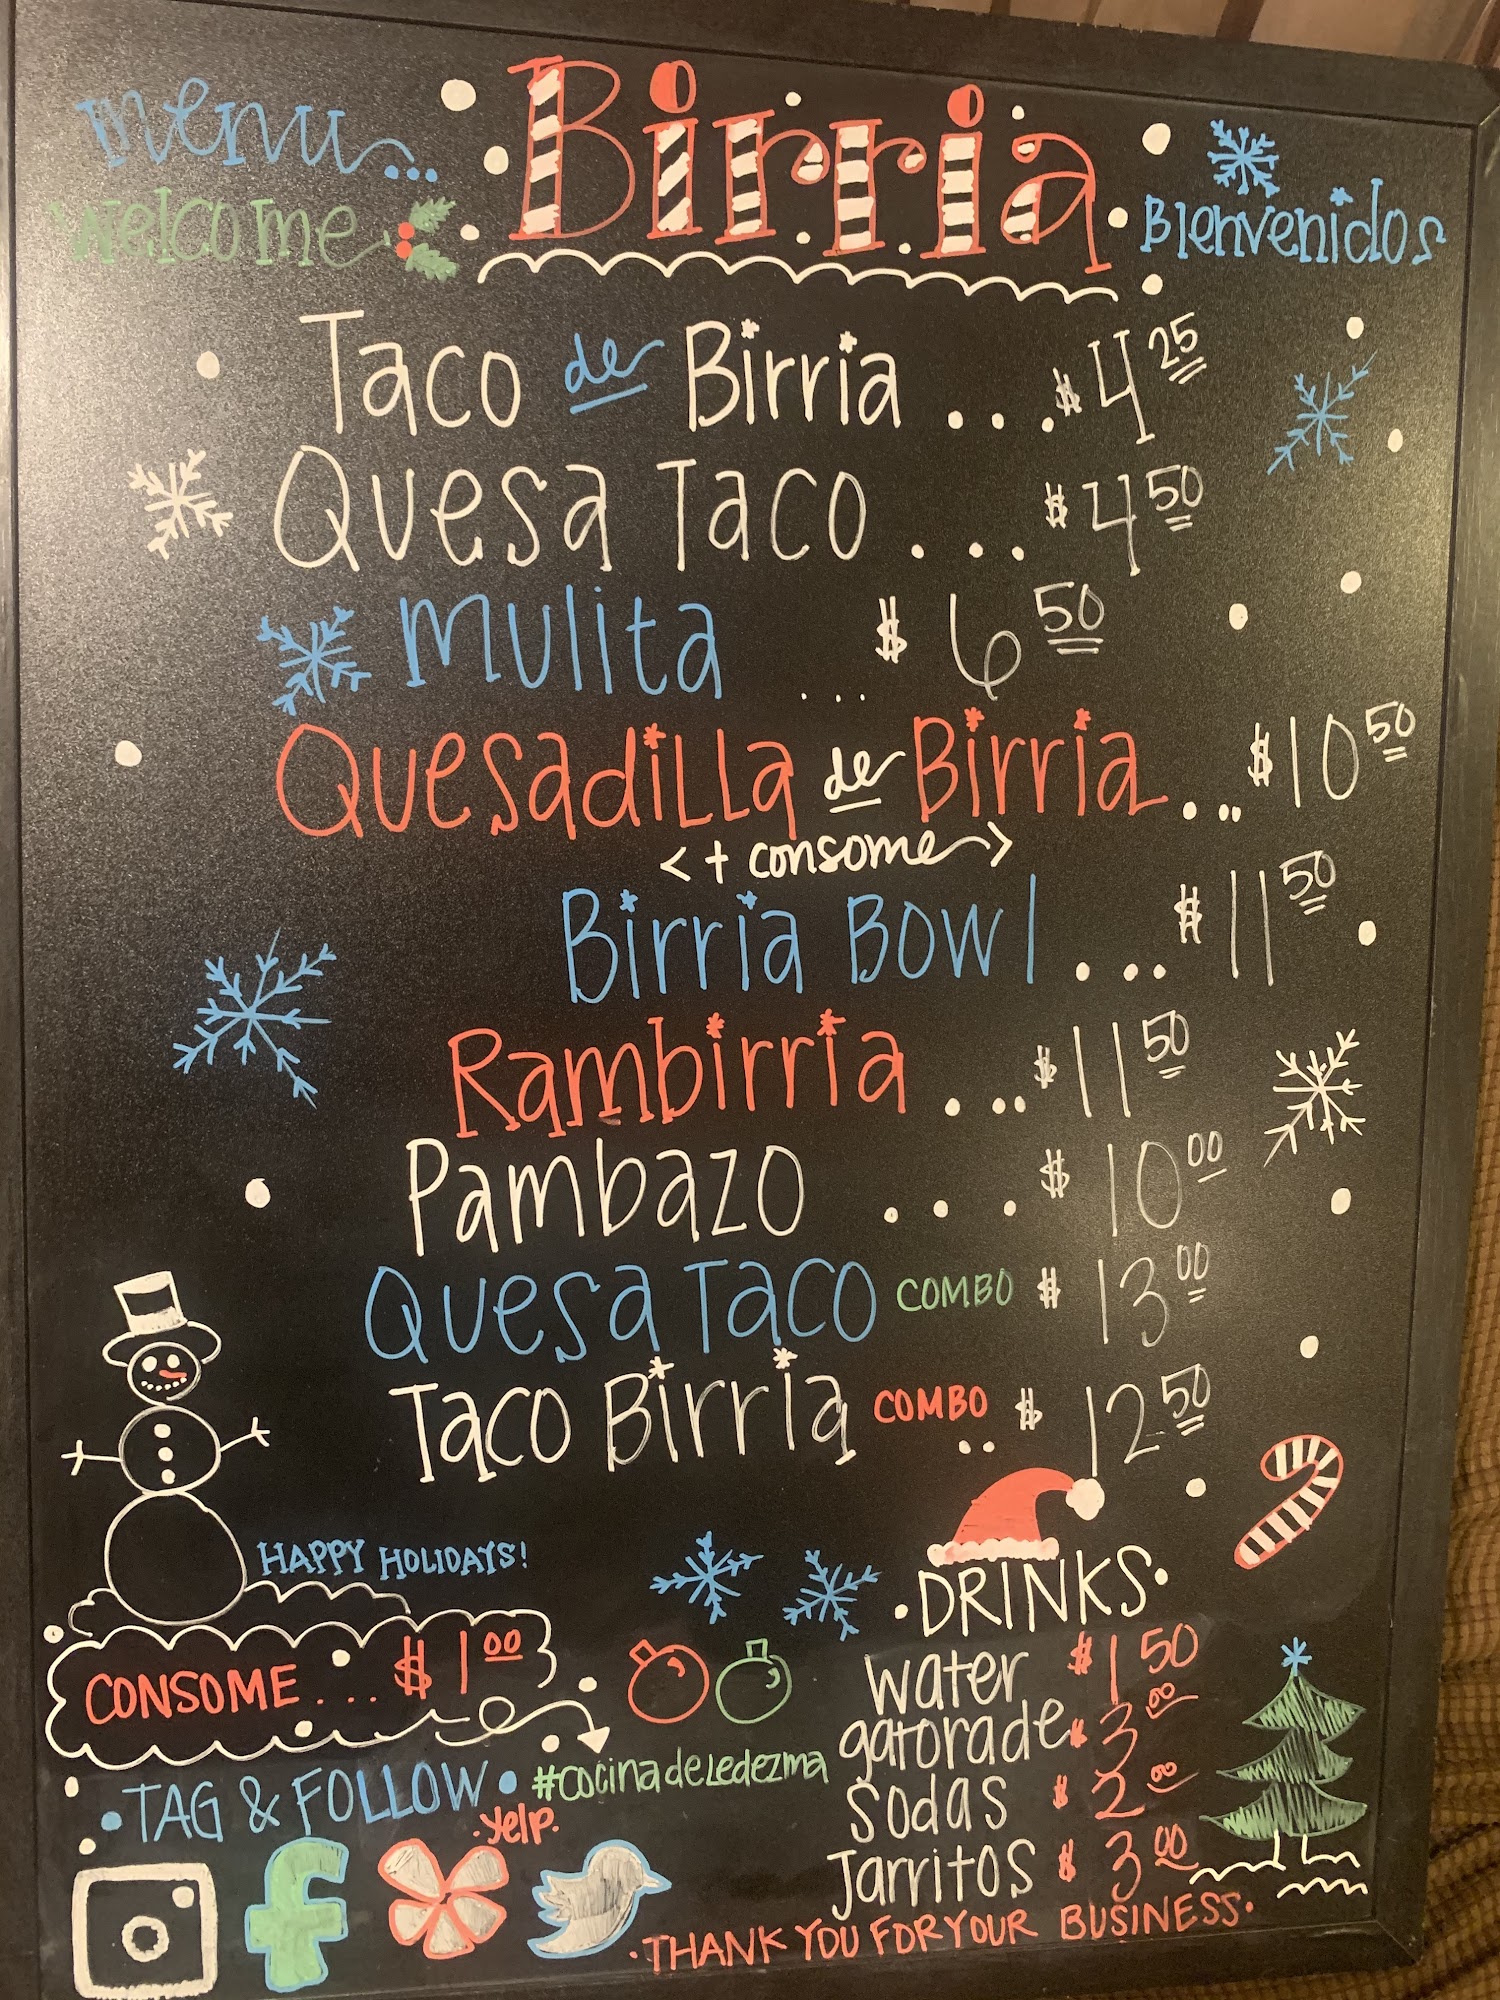 menu...
Birria
welcome
Bienvenidos
Taco de Birria ... $4 25
Quesa Taco ... $4 50
Mulita ... $6 50
Quesadilla de Birria ... $10 50
<+ consome>
Birria Bowl ... $11 50
Rambirria ... $11 50
Pambazo ... $10 00
Quesa Taco COMBO $13 00
Taco Birria COMBO .. $12 50
HAPPY HOLIDAYS!
CONSOME.... $1 00
•DRINKS•
water $1 50
gatorade $3 00
sodas $2 00
Jarritos $3 00
•TAG & FOLLOW• #cocinadeledezma
•yelp•
•THANK YOU FOR YOUR BUSINESS•